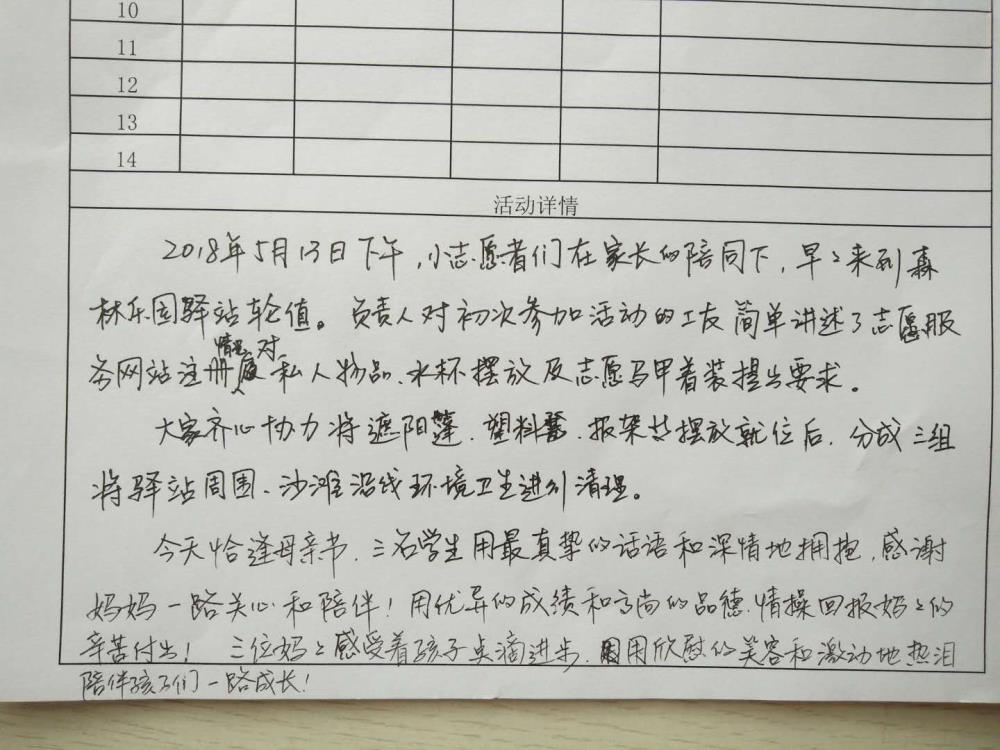 10
11
12
13
14
活动详情
2018年5月13日下午，小志愿者们在家长的陪同下，早々来到森
林乐园驿站轮值。负责人对初次参加活动的工友简单讲述了志愿服
情况 对
务网站注册 私人物品、水杯摆放及志愿马甲着装提出要求。
大家齐心协力将遮阳蓬、塑料凳、报架共摆放就位后，分成三组
将驿站周围、沙滩沿线环境卫生进行清理。
今天恰逢母亲节，三名学生用最真挚的话语和深情地拥抱，感谢
妈妈一路关心和陪伴！用优异的成绩和高尚的品德、情操回报妈々的
辛苦付出！三位妈々感受着孩子点滴进步，用欣慰的笑容和激动地热泪
陪伴孩子们一路成长！